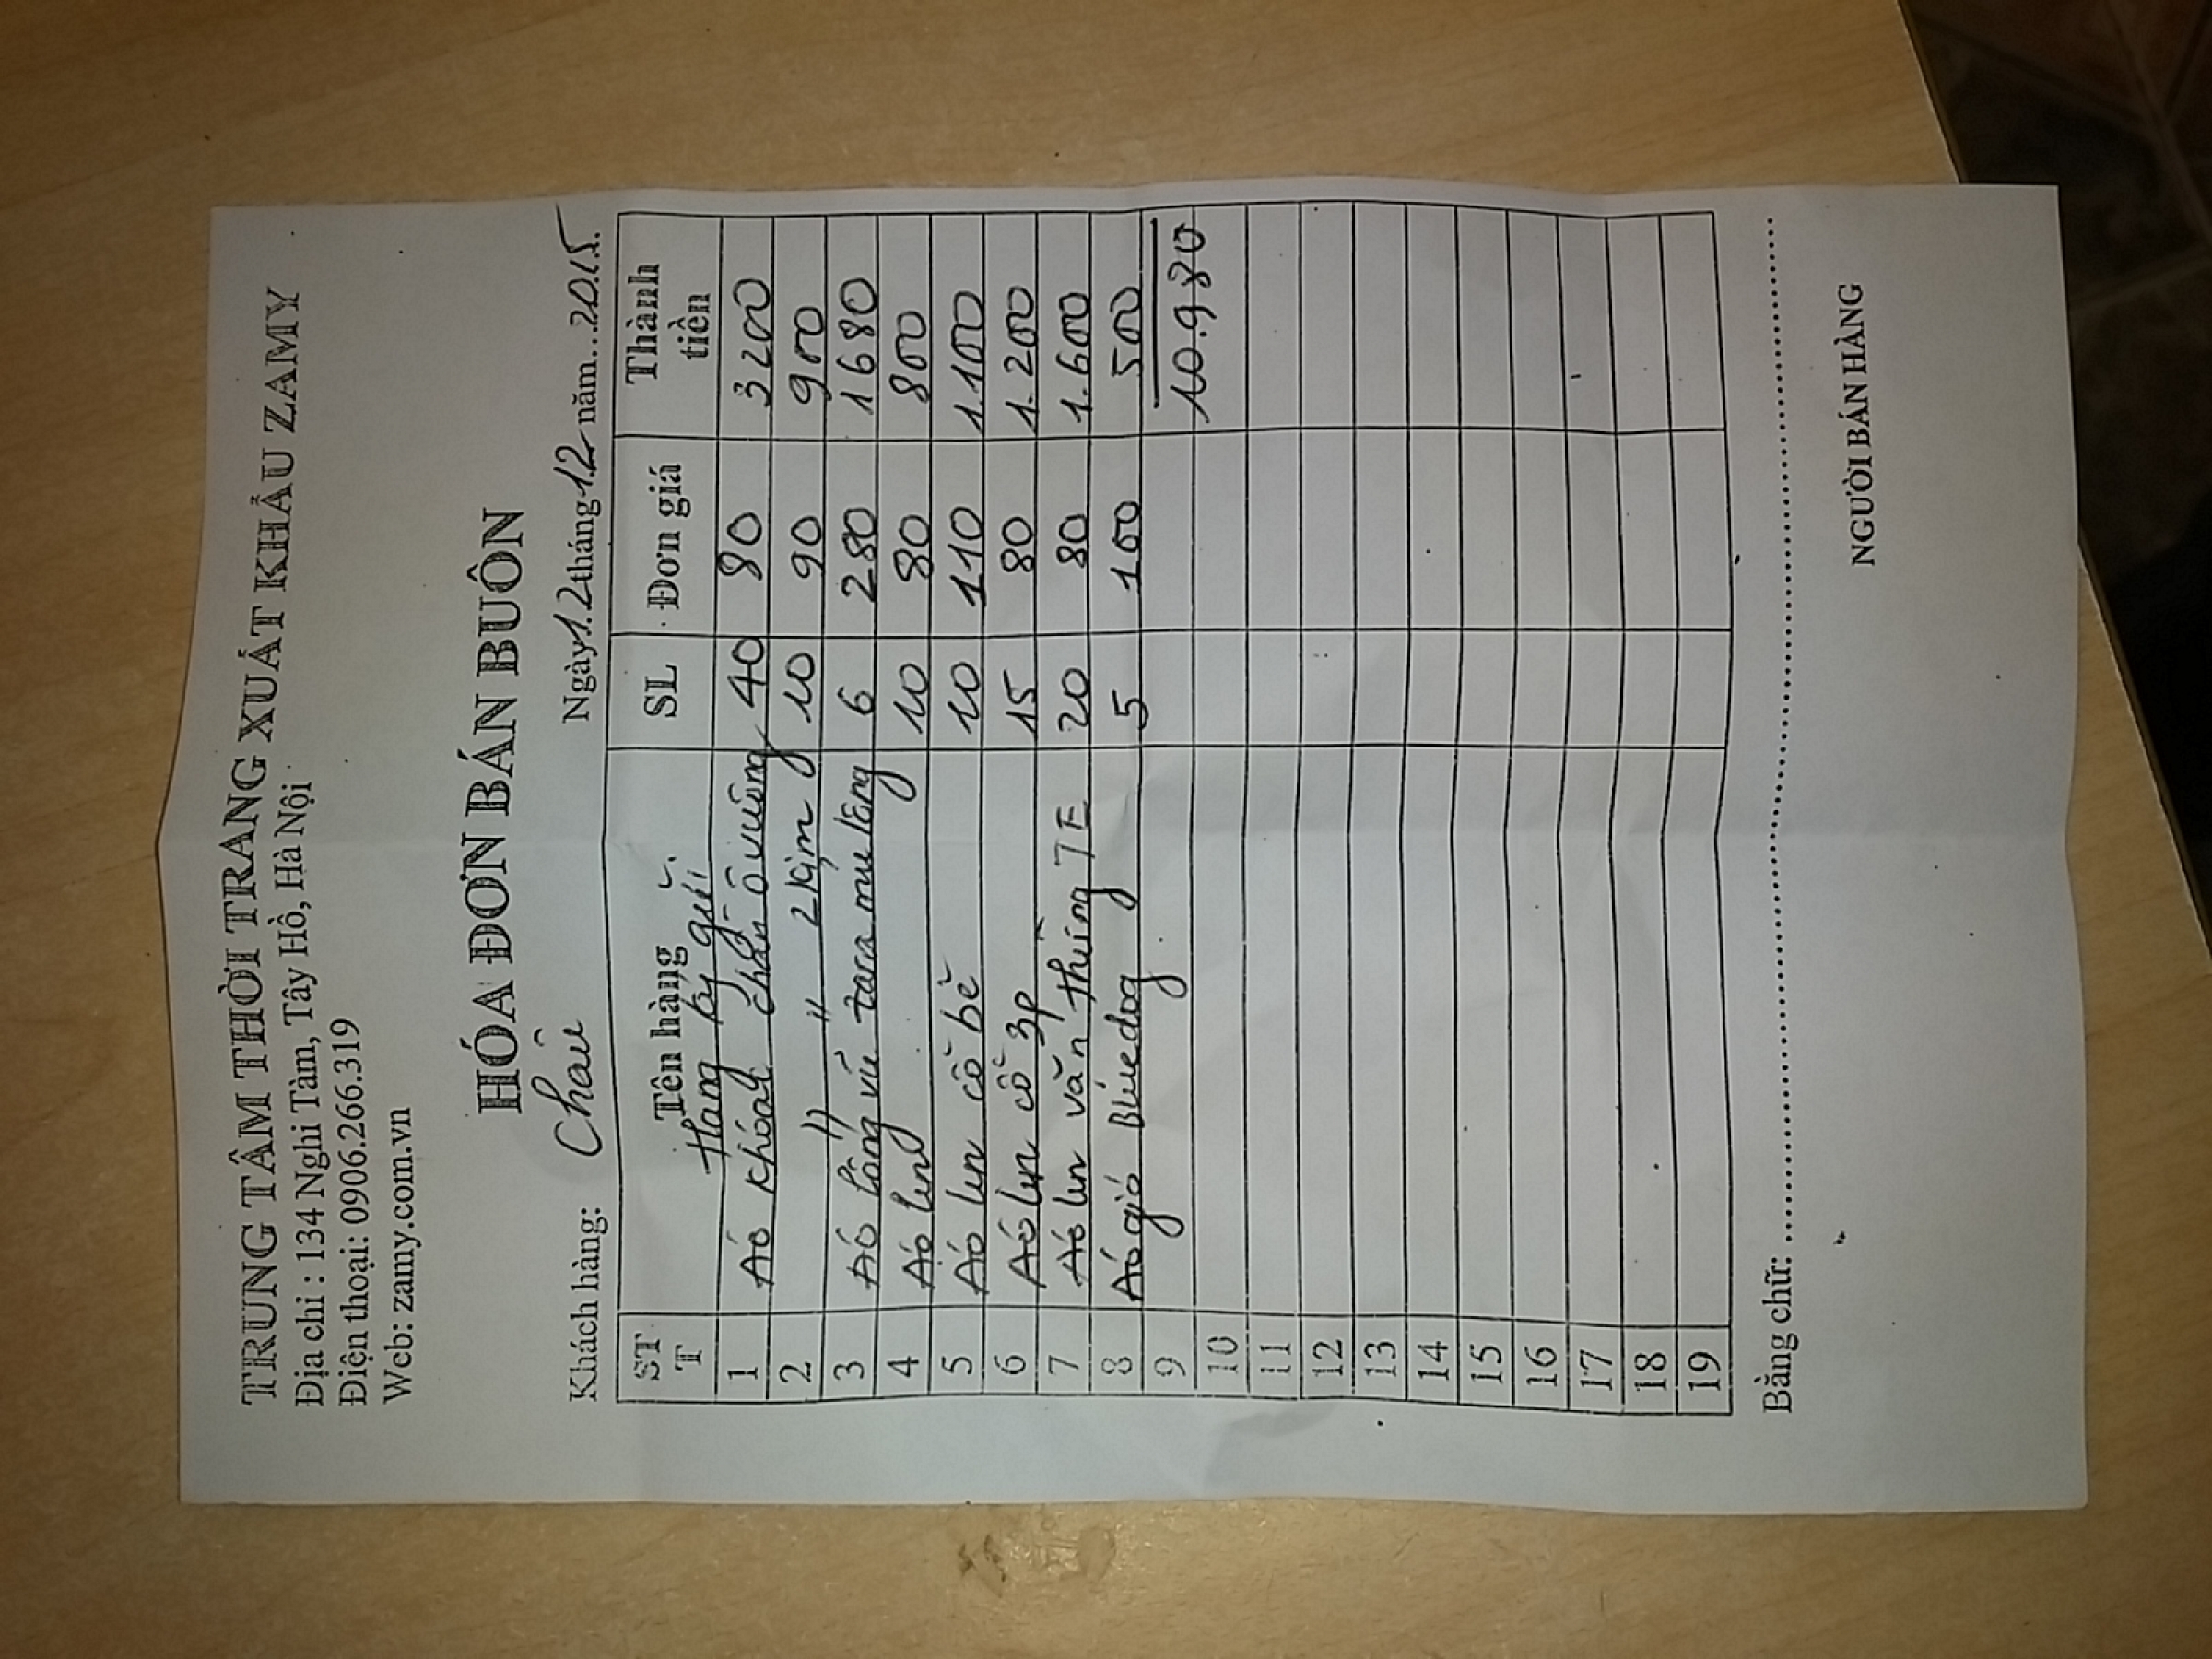 TRUNG TÂM THỜI TRANG XUẤT KHẨU ZAMY
Địa chỉ : 134 Nghi Tàm, Tây Hồ, Hà Nội
Điện thoại: 0906.266.319
Web: zamy.com.vn
HÓA ĐƠN BÁN BUÔN
Khách hàng: Châu Ngày 12 tháng 12 năm...2015.
STT Tên hàng SL Đơn giá Thành tiền
Hàng ký gửi
1 Áo khoác chần ô vuông 40 80 3200
2 " " 2 kim 10 90 900
3 Áo lông vũ zara mu lông 6 280 1680
4 Áo len 10 80 800
5 Áo len cổ bẻ 10 110 1.100
6 Áo len cổ 3p 15 80 1.200
7 Áo len vặn thừng TE 20 80 1.600
8 Áo gió Bluedog 5 100 500
9 10.980
10
11
12
13
14
15
16
17
18
19
Bằng chữ: ........................................
NGƯỜI BÁN HÀNG